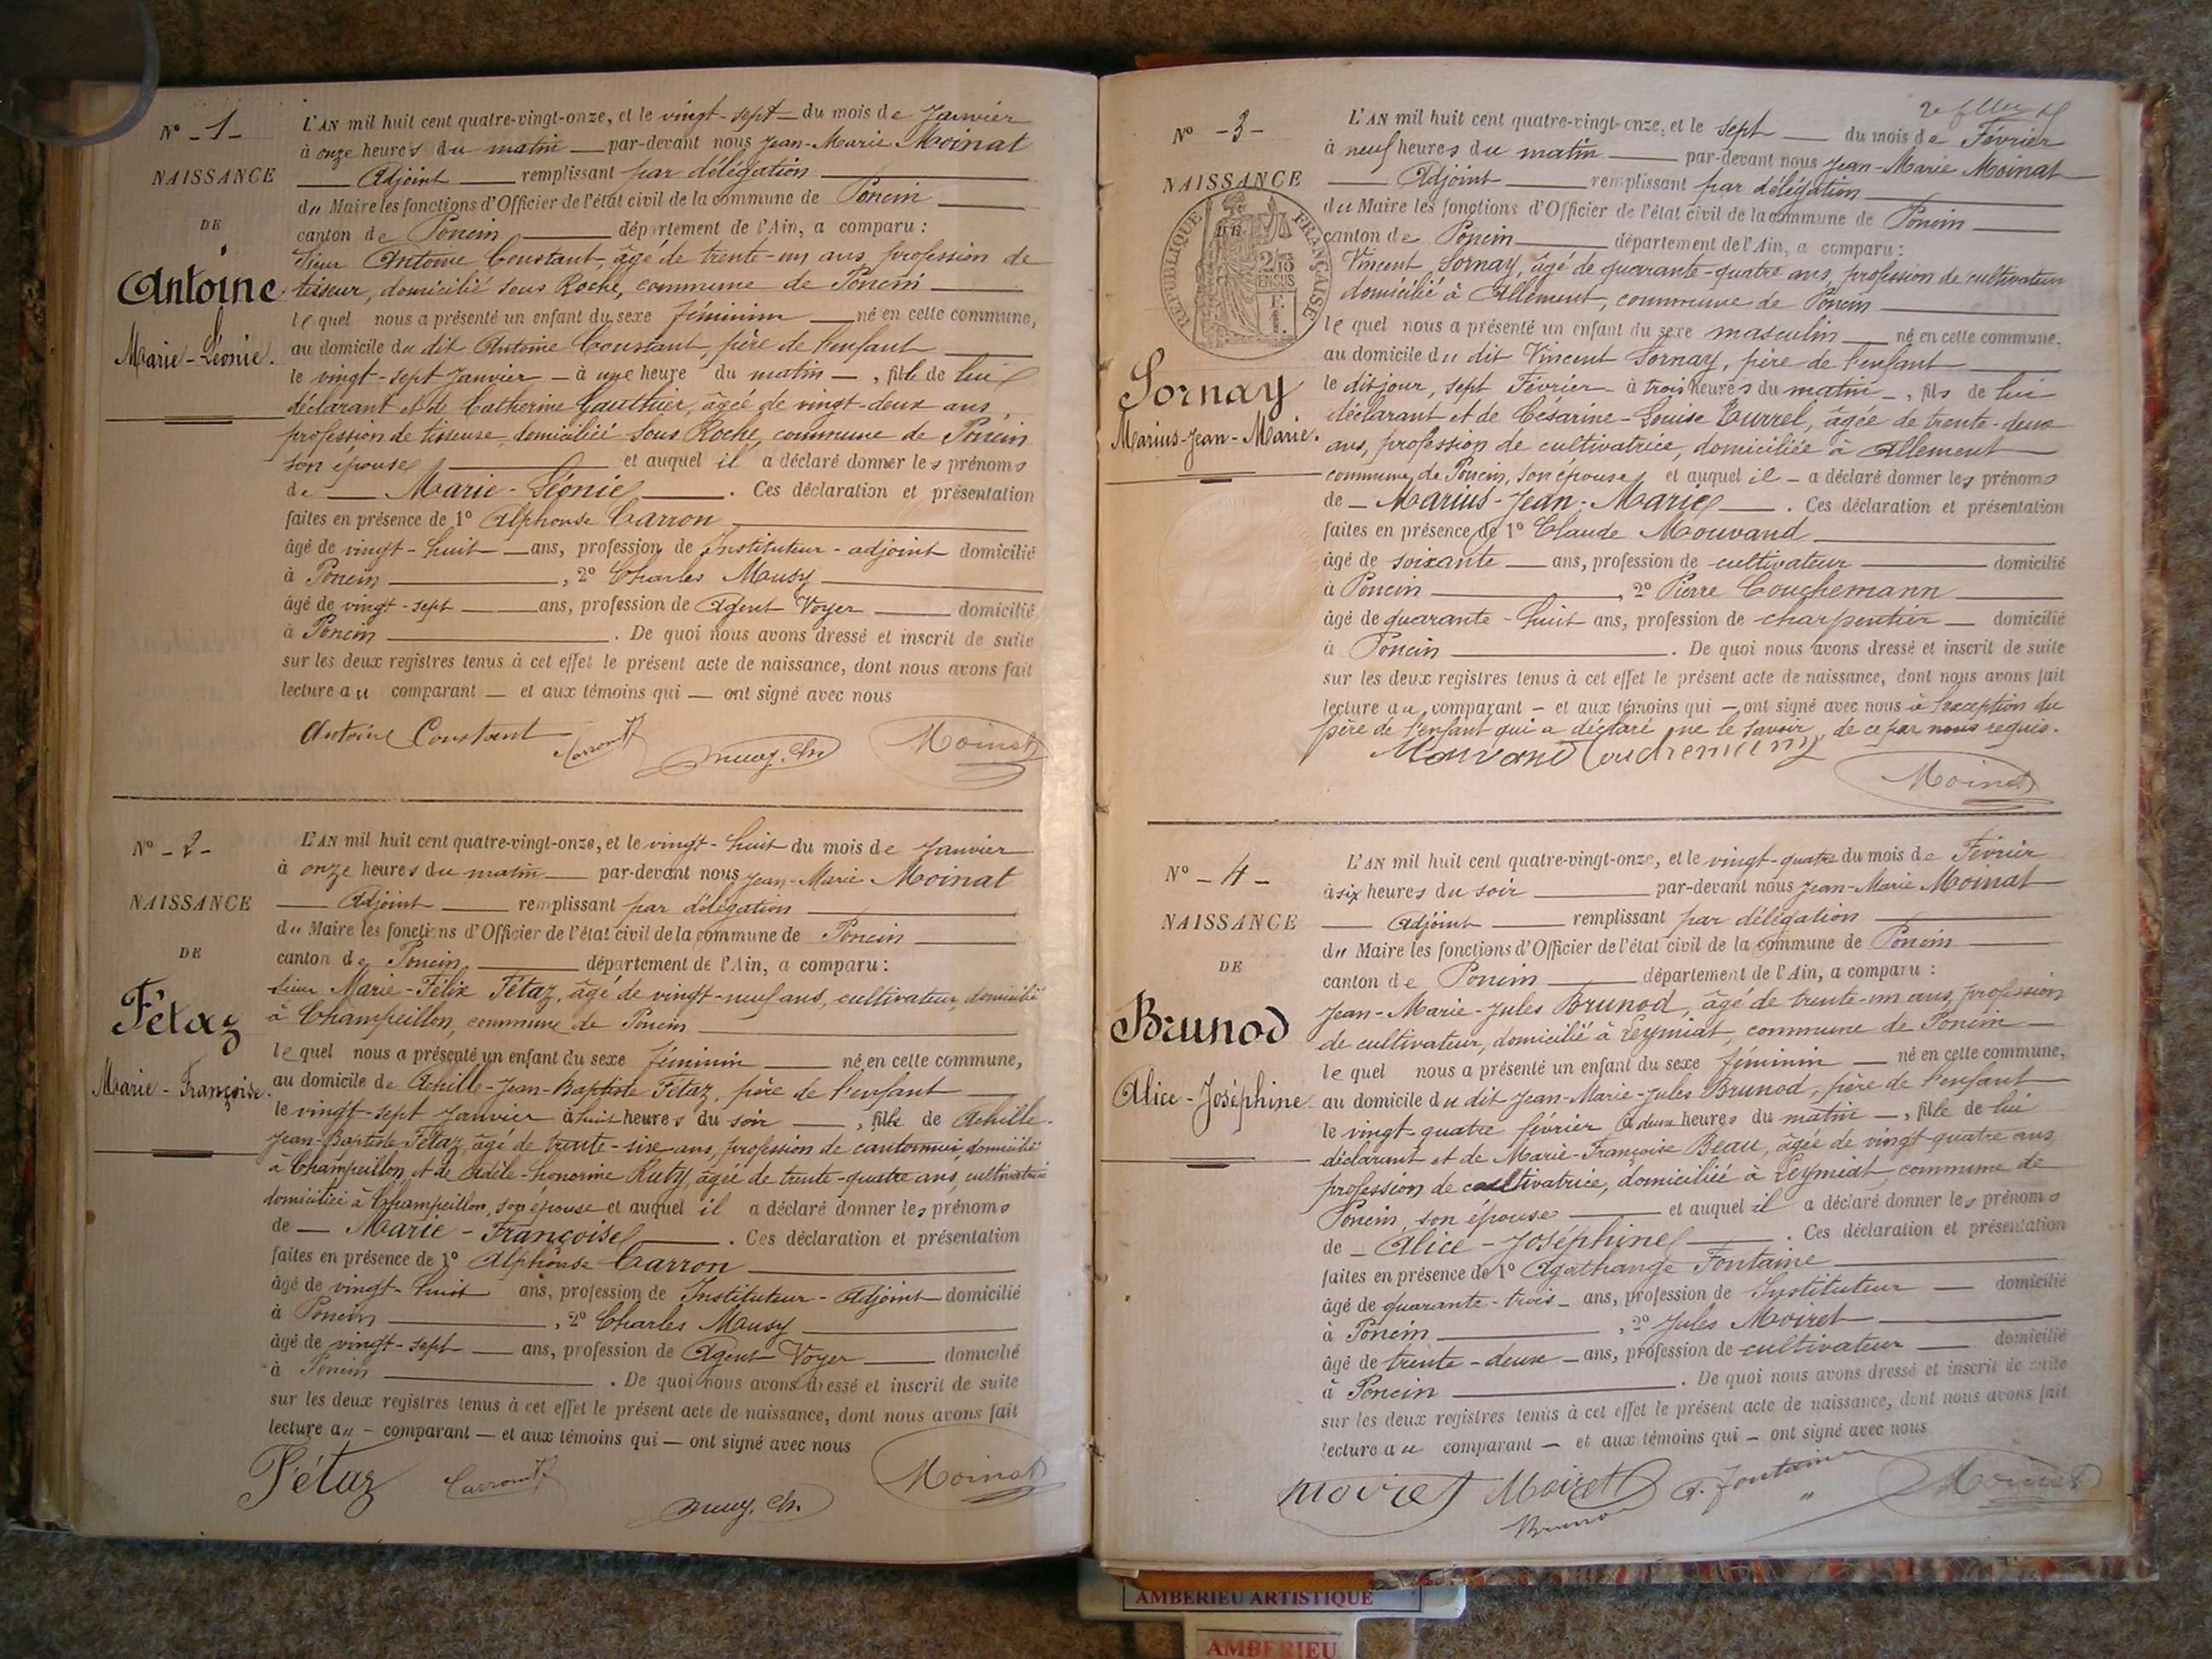 N° - 1 -
NAISSANCE
DE
Antoine
Marie-Léonie.
L'AN mil huit cent quatre-vingt-onze, et le vingt-sept du mois de Janvier
à onze heures du matin par-devant nous Jean-Marie Moinat
Adjoint remplissant par délégation
du Maire les fonctions d'Officier de l'état civil de la commune de Poncin
canton de Poncin département de l'Ain, a comparu :
Sieur Antoine Constant, âgé de trente-un ans, profession de
tisseur, domicilié sous Roche, commune de Poncin
lequel nous a présenté un enfant du sexe féminin né en cette commune,
au domicile du dit Antoine Constant, père de l'enfant
le vingt-sept Janvier - à une heure du matin - , fille de lui
déclarant et de Catherine Gauthier, âgée de vingt-deux ans,
profession de tisseuse, domiciliée sous Roche, commune de Poncin
son épouse et auquel il a déclaré donner les prénoms
de Marie-Léonie . Ces déclaration et présentation
faites en présence de 1° Alphonse Carron
âgé de vingt-huit ans, profession de Instituteur-adjoint domicilié
à Poncin , 2° Charles Mausy
âgé de vingt-sept ans, profession de Agent Voyer domicilié
à Poncin . De quoi nous avons dressé et inscrit de suite
sur les deux registres tenus à cet effet le présent acte de naissance, dont nous avons fait
lecture au comparant - et aux témoins qui - ont signé avec nous
Antoine Constant Carron Moinat
N° - 2 -
NAISSANCE
DE
Fétaz
Marie-Françoise.
L'AN mil huit cent quatre-vingt-onze, et le vingt-huit du mois de Janvier
à onze heures du matin par-devant nous Jean-Marie Moinat
Adjoint remplissant par délégation
du Maire les fonctions d'Officier de l'état civil de la commune de Poncin
canton de Poncin département de l'Ain, a comparu :
sieur Marie-Félix Fétaz, âgé de vingt-neuf ans, cultivateur, domicilié
à Champeillon, commune de Poncin
lequel nous a présenté un enfant du sexe féminin né en cette commune,
au domicile de Achille-Jean-Baptiste Fétaz, père de l'enfant
le vingt-sept Janvier à huit heures du soir , fille de Achille-
Jean-Baptiste Fétaz, âgé de trente-six ans, profession de cantonnier, domicilié
à Champeillon, et de Adèle-Honorine Ruty, âgée de trente-quatre ans, cultivatrice
domiciliée à Champeillon, son épouse et auquel il a déclaré donner les prénoms
de Marie-Françoise . Ces déclaration et présentation
faites en présence de 1° Alphonse Carron
âgé de vingt-huit ans, profession de Instituteur-Adjoint domicilié
à Poncin , 2° Charles Mausy
âgé de vingt-sept ans, profession de Agent Voyer domicilié
à Poncin . De quoi nous avons dressé et inscrit de suite
sur les deux registres tenus à cet effet le présent acte de naissance, dont nous avons fait
lecture au - comparant - et aux témoins qui - ont signé avec nous
Fétaz Carron Moinat
N° - 3 -
NAISSANCE
RÉPUBLIQUE FRANÇAISE
Sornay
Marius-Jean-Marie.
L'AN mil huit cent quatre-vingt-onze, et le sept du mois de Février
à neuf heures du matin par-devant nous Jean-Marie Moinat
Adjoint remplissant par délégation
du Maire les fonctions d'Officier de l'état civil de la commune de Poncin
canton de Poncin département de l'Ain, a comparu :
Vincent Sornay, âgé de quarante-quatre ans, profession de cultivateur
domicilié à Allement, commune de Poncin
lequel nous a présenté un enfant du sexe masculin né en cette commune,
au domicile du dit Vincent Sornay, père de l'enfant
le dit jour, sept Février - à trois heures du matin - , fils de lui
déclarant et de Césarine-Louise Curvel, âgée de trente-deux
ans, profession de cultivatrice, domiciliée à Allement
commune de Poncin, son épouse et auquel il - a déclaré donner les prénoms
de - Marius-Jean-Marie . Ces déclaration et présentation
faites en présence de 1° Claude Mouvand
âgé de soixante ans, profession de cultivateur domicilié
à Poncin , 2° Pierre Couchemann
âgé de quarante-huit ans, profession de charpentier domicilié
à Poncin . De quoi nous avons dressé et inscrit de suite
sur les deux registres tenus à cet effet le présent acte de naissance, dont nous avons fait
lecture au comparant - et aux témoins qui - ont signé avec nous à l'exception du
père de l'enfant qui a déclaré ne le savoir, de ce par nous requis.
Mouvand Moinat
N° - 4 -
NAISSANCE
DE
Brunod
Alice-Joséphine
L'AN mil huit cent quatre-vingt-onze, et le vingt-quatre du mois de Février
à six heures du soir par-devant nous Jean-Marie Moinat
Adjoint remplissant par délégation
du Maire les fonctions d'Officier de l'état civil de la commune de Poncin
canton de Poncin département de l'Ain, a comparu :
Jean-Marie-Jules Brunod, âgé de trente-un ans, profession
de cultivateur, domicilié à Leymiat, commune de Poncin
lequel nous a présenté un enfant du sexe féminin né en cette commune,
au domicile du dit Jean-Marie-Jules Brunod, père de l'enfant
le vingt-quatre février à deux heures du matin - , fille de lui
déclarant et de Marie-Françoise Beau, âgée de vingt-quatre ans
profession de cultivatrice, domiciliée à Leymiat, commune de
Poncin, son épouse et auquel il a déclaré donner les prénoms
de - Alice-Joséphine . Ces déclaration et présentation
faites en présence de 1° Agathange Fontaine
âgé de quarante-trois ans, profession de Instituteur domicilié
à Poncin , 2° Jules Moiret
âgé de trente-deux ans, profession de cultivateur domicilié
à Poncin . De quoi nous avons dressé et inscrit de suite
sur les deux registres tenus à cet effet le présent acte de naissance, dont nous avons fait
lecture au comparant - et aux témoins qui - ont signé avec nous
Moiret Moiret A. Fontaine Moinat
Brunod
AMBERIEU ARTISTIQUE
AMBERIEU